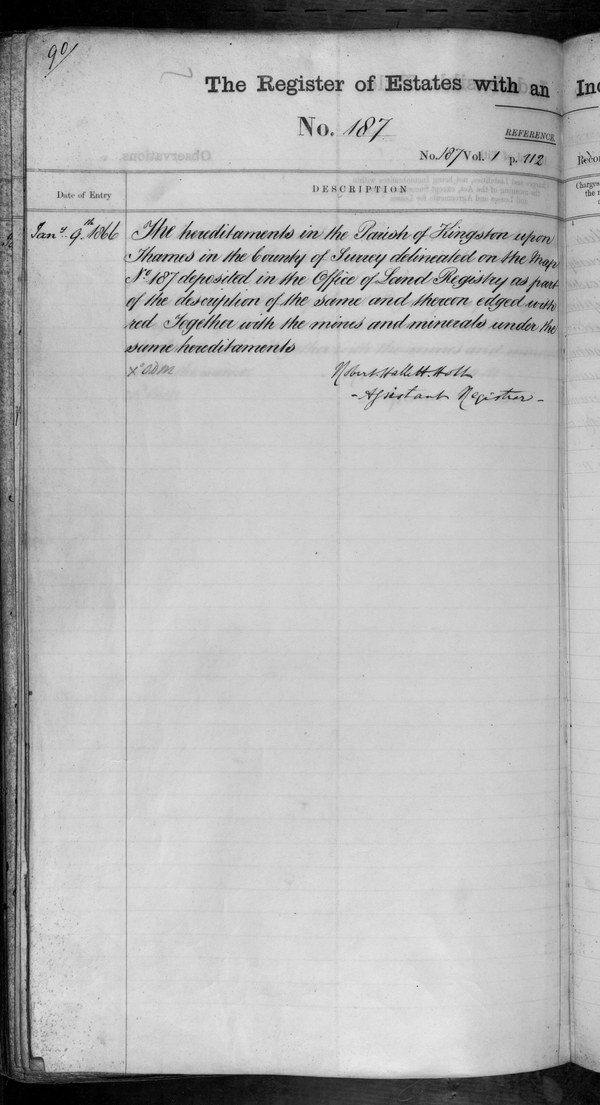 90
The Register of Estates with an
No. 187
REFERENCE
No. 187 Vol. 1 p. 112
Date of Entry
DESCRIPTION
Jany. 9th 1866
The hereditaments in the Parish of Kingston upon
Thames in the County of Surrey delineated on the Map
No 187 deposited in the Office of Land Registry as part
of the description of the same and thereon edged with
red Together with the mines and minerals under the
same hereditaments
Robert Hallett Holt
- Assistant Registrar -